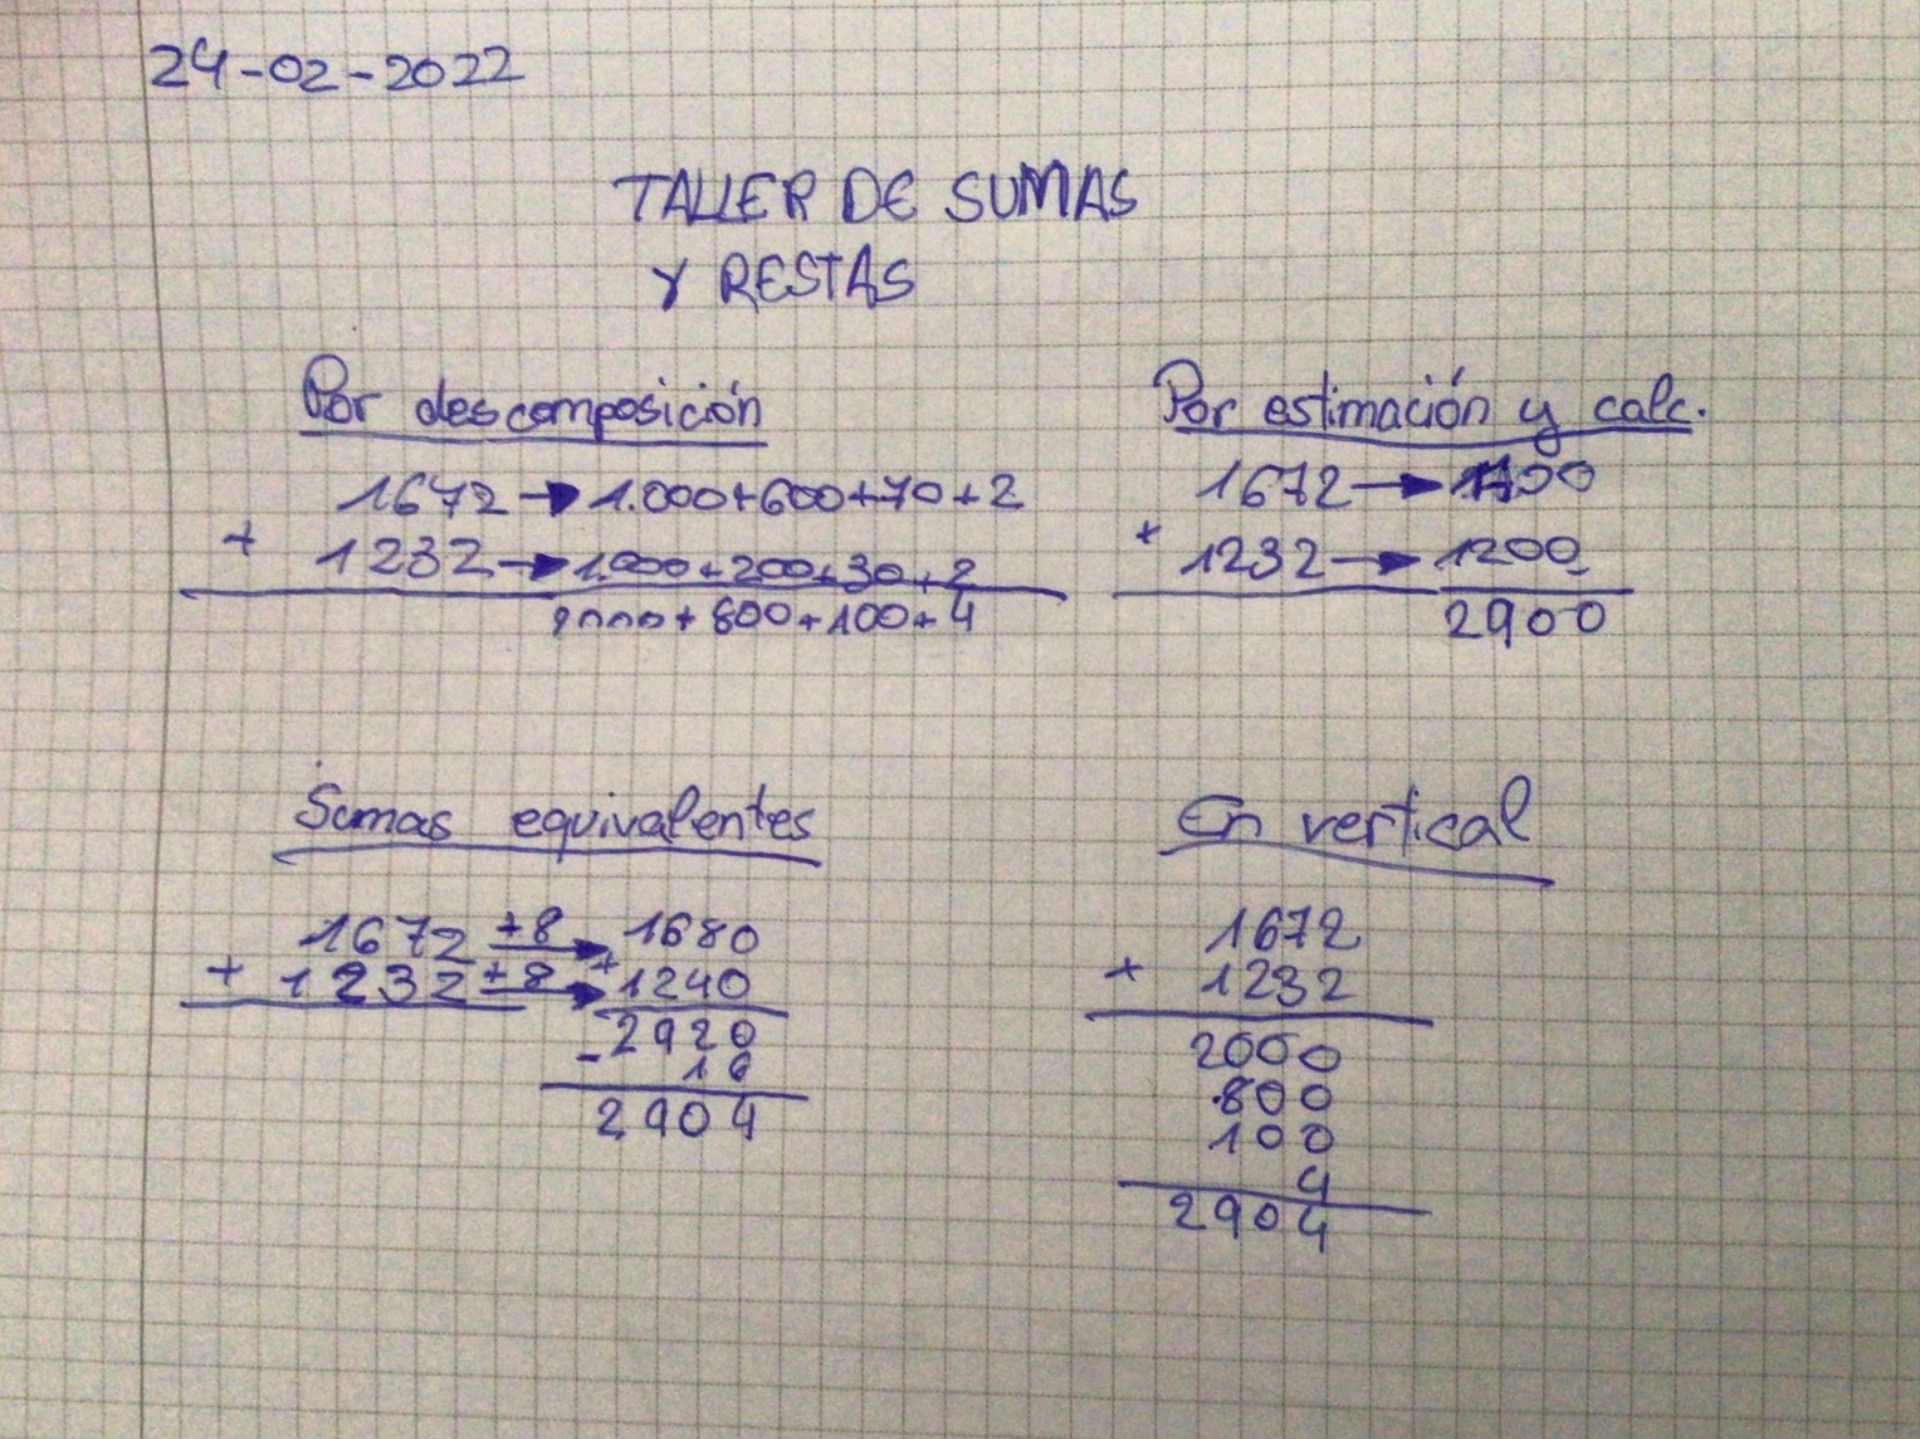 24-02-2022
TALLER DE SUMAS
Y RESTAS
Por descomposición
1672 → 1.000+600+70+2
+ 1232 → 1.000+200+30+2
2000+800+100+4
Por estimación y calc.
1672 → 1700
+ 1232 → 1200
2900
Sumas equivalentes
1672 +8 → 1680
+ 1232 +8 → +1240
2920
- 16
2904
En vertical
1672
+ 1232
2000
800
100
4
2904